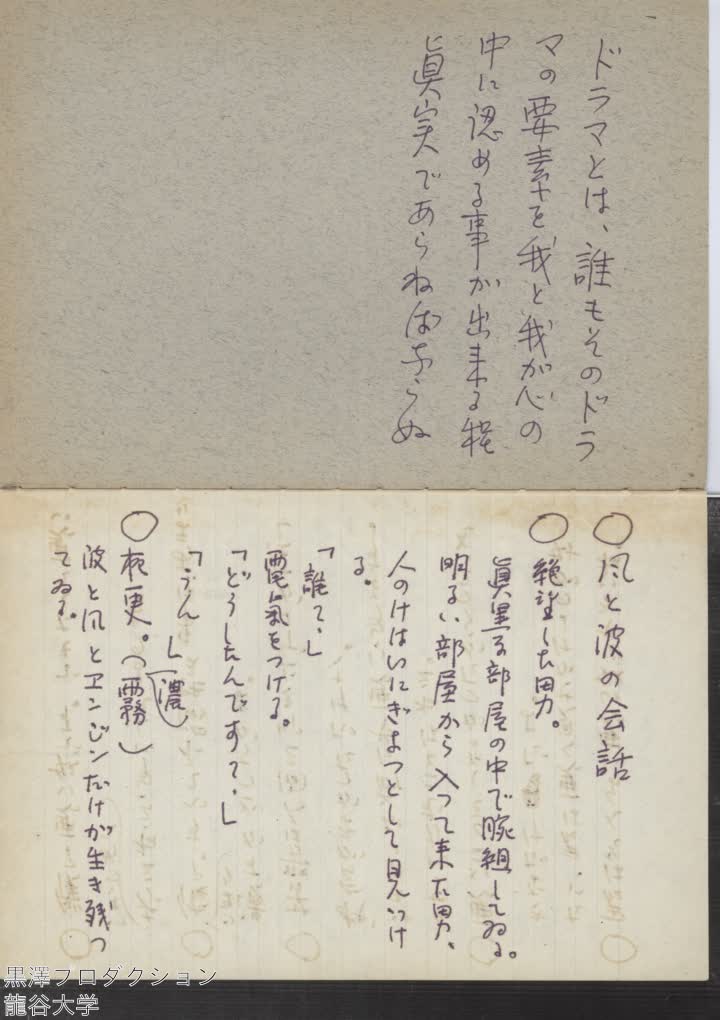 ドラマとは、誰もそのドラ
マの要素を我と我が心の
中に認める事が出来る程
眞実であらねばならぬ
○風と波の会話
○絶望した男。
眞黒な部屋の中で腕組してゐる。
明るい部屋から入つて来た男、
人のけはいにぎよつとして見つけ
る。
「誰て、」
電気をつける。
「どうしたんですて、」
「うん」
○夜更。(濃霧)
波と風とエンジンだけが生き残つ
てゐる。
黒澤プロダクション
龍谷大学